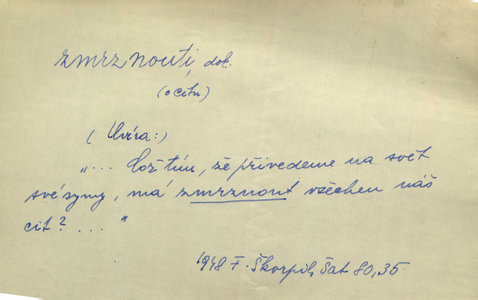 zmrznouti, dok.
(o citu)
( Elvíra:)
"... Což tím, že přivedeme na svět
své syny, má zmrznout všechen náš
cit? ... "
1948 F. Škorpil, Šat 80,35